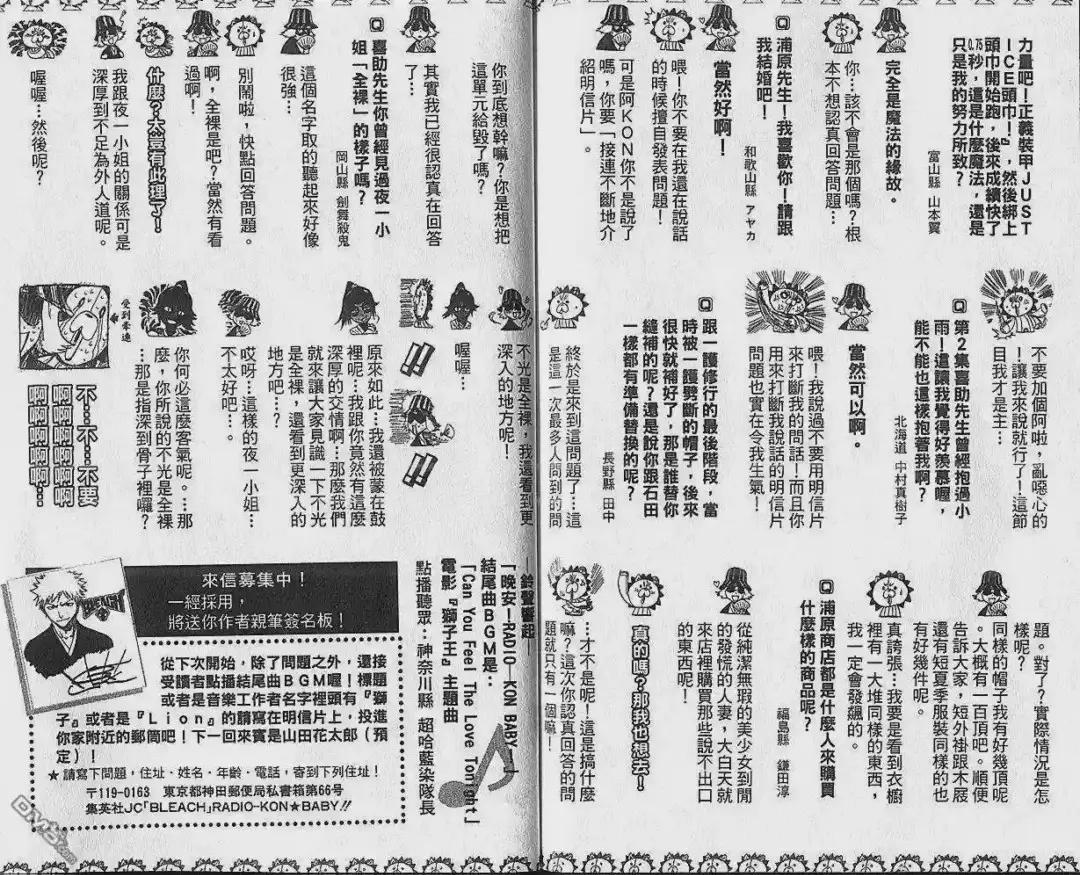 力量吧！正義裝甲JUST
ICE頭巾！』，然後綁上
頭巾開始跑，後來成績快了
0.75秒，這是什麼魔法，還是
只是我的努力所致？
富山縣 山本翼
完全是魔法的緣故。
你…該不會是那個嗎？根
本不想認真回答問題…
Q浦原先生！我喜歡你！請跟
我結婚吧！
和歌山縣 アヤカ
當然好啊！
喂！你不要在我還在說話
的時候擅自發表問題！
可是阿KON你不是說了
嗎，你要「接連不斷地介
紹明信片」。
不要加個阿啦，亂噁心的
！讓我來說就行了！這節
目我才是主…
Q第2集喜助先生曾經抱過小
雨！這讓我覺得好羨慕喔，
能不能也這樣抱著我啊？
北海道 中村真樹子
當然可以啊。
喂！我說過不要用明信片
來打斷我的問話！而且你
用來打斷我說話的明信片
問題也實在令我生氣！
Q跟一護修行的最後階段，當
時被一護劈斷的帽子，後來
很快就補好了，那是誰替你
縫補的呢？還是說你跟石田
一樣都有準備替換的呢？
長野縣 田中
終於是來到這問題了…這
是這一次最多人問到的問
題。對了？實際情況是怎
樣呢？
同樣的帽子我有好幾頂呢
。大概有一百頂吧。順便
告訴大家，短外褂跟木屐
還有短夏季服裝同樣的也
有好幾件呢。
真誇張…我要是看到衣櫥
裡有一大堆同樣的東西，
我一定會發飆的。
Q浦原商店都是什麼人來購買
什麼樣的商品呢？
福島縣 鎌田淳
從純潔無瑕的美少女到閒
的發慌的人妻，大白天就
來店裡購買那些說不出口
的東西呢！
真的嗎？那我也想去！
…才不是呢！這是搞什麼
嘛？這次你認真回答的問
題就只有一個嘛！
你到底想幹嘛？你是想把
這單元給毀了嗎？
其實我已經很認真在回答
了…
Q喜助先生你曾經見過夜一小
姐「全裸」的樣子嗎？
岡山縣 劍舞殺鬼
這個名字取的聽起來好像
很強…
別鬧啦，快點回答問題。
啊，全裸是吧？當然有看
過啊！
什麼？太豈有此理了！
我跟夜一小姐的關係可是
深厚到不足為外人道呢。
喔喔…然後呢？
不光是全裸，我還看到更
深入的地方呢！
喔喔…
!!
!!
原來如此…我還被蒙在鼓
裡呢…我跟你竟然有這麼
深厚的交情啊…那麼我們
就來讓大家見識一下不光
是全裸，還看到更深入的
地方吧…？
哎呀…這樣的夜一小姐…
不太好吧…。
你何必這麼客氣呢。…那
麼，你所說的不光是全裸
…那是指深到骨子裡囉？
受到牽連
不…不…不要
啊啊啊啊啊
啊啊啊啊啊…
—鈴聲響起—
「晚安—RADIO-KON BABY—」
結尾曲BGM是：
「Can You Feel The Love Tonight」
電影『獅子王』主題曲
點播聽眾：神奈川縣 超哈藍染隊長
來信募集中！
一經採用，
將送你作者親筆簽名板！
BLEACH
從下次開始，除了問題之外，還接
受讀者點播結尾曲BGM喔！標題
或者是音樂工作者名字裡頭有『獅
子』或者是『Lion』的請寫在明信片上，投進
你家附近的郵筒吧！下一回來賓是山田花太郎（預
定）！
★請寫下問題，住址・姓名・年齡・電話，寄到下列住址！
〒119-0163 東京都神田郵便局私書箱第66号
集英社JC「BLEACH」RADIO-KON★BABY!!